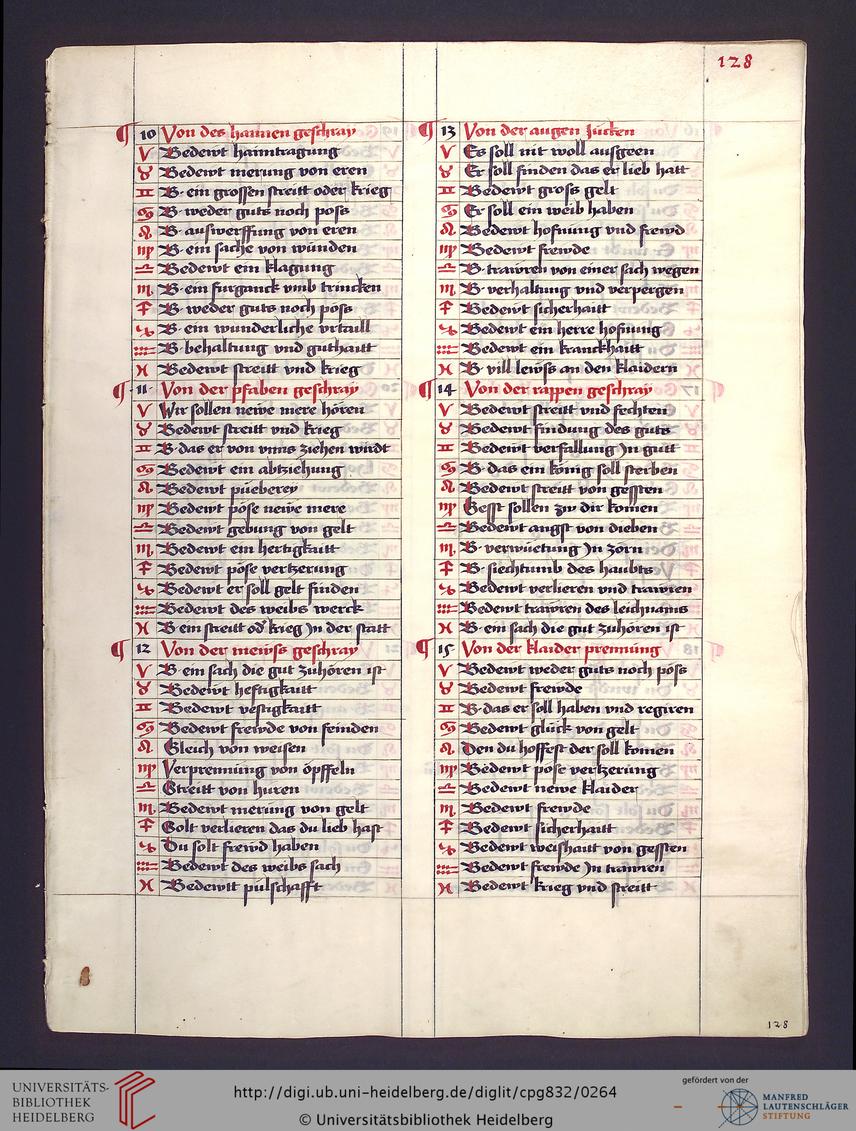 128
10 Von des hannen geschray
♈ Bedewt haimtragung
♉ Bedewt merung von eren
♊ B· ein grossen streitt oder krieg
♋ B· weder guts noch poss
♌ B· auswerffung von eren
♍ B· ein sache von wunden
♎ Bedewt ein klagung
♏ B· ein furganck vmb trincken
♐ B· weder guts noch pöss
♑ B· ein wunderliche vrtaill
♒ B· behaltung vnd guthaitt
♓ Bedewt streitt vnd krieg
11 Von der pfaben geschray
♈ Wir sollen newe mere hören
♉ Bedewt streitt vnd krieg
♊ B· das er von vnns ziehen wirdt
♋ Bedewt ein abtziehung
♌ Bedewt pueberey
♍ Bedewt pöse newe mere
♎ Bedewt gebung von gelt
♏ Bedewt ein hertigkaitt
♐ Bedewt pöse vertzerung
♑ Bedewt er soll gelt finden
♒ Bedewt des weibs werck
♓ B· ein streitt od' krieg Jn der statt
12 Von der mewss geschray
♈ B· ein sach die gut zuhören ist
♉ Bedewt hefftigkaitt
♊ Bedewt vestigkaitt
♋ Bedewt frewde von feinden
♌ Gleich von weisen
♍ Verprennung von öpffeln
♎ Streitt von huren
♏ Bedewt merung von gelt
♐ Solt verlieren das du lieb hast
♑ Du solt frewd haben
♒ Bedewt des weibs sach
♓ Bedewtt pulschafft
13 Von der augen Jucken
♈ Es soll nit woll ausgeen
♉ Er soll finden das er lieb hatt
♊ Bedewt gross gelt
♋ Er soll ein weib haben
♌ Bedewt hofnung vnd frewd
♍ Bedewt frewde
♎ B· trawren von einer sach wegen
♏ B· verhaltung vnd verpergen
♐ Bedewt sicherhaitt
♑ Bedewt ein herre hofnung
♒ Bedewt ein kranckhaitt
♓ B· vill lewss an den klaidern
14 Von der rappen geschray
♈ Bedewt streitt vnd fechten
♉ Bedewt findung des guts
♊ Bedewt verfallung Jn gutt
♋ B· das ein könig soll sterben
♌ Bedewt streitt von gessten
♍ Gesst sollen zw dir komen
♎ Bedewt angst von dieben
♏ B· verwuetung Jn zorn
♐ B· siechtumb des haubts
♑ Bedewt verlieren vnd trawren
♒ Bedewt trawren des leichnams
♓ B· ein sach die gut zuhören ist
15 Von der klaider prennung
♈ Bedewt weder guts noch pöss
♉ Bedewt frewde
♊ B· das er soll haben vnd regiren
♋ Bedewt gluck von gelt
♌ Den du hoffest der soll komen
♍ Bedewt pose vertzerung
♎ Bedewt newe klaider
♏ Bedewt frewde
♐ Bedewt sicherhaitt
♑ Bedewt weishaitt von gessten
♒ Bedewt frewde Jn trawren
♓ Bedewt krieg vnd streitt
128
UNIVERSITÄTS-
BIBLIOTHEK
HEIDELBERG
http://digi.ub.uni-heidelberg.de/diglit/cpg832/0264
© Universitätsbibliothek Heidelberg
gefördert von der
MANFRED
LAUTENSCHLÄGER
STIFTUNG